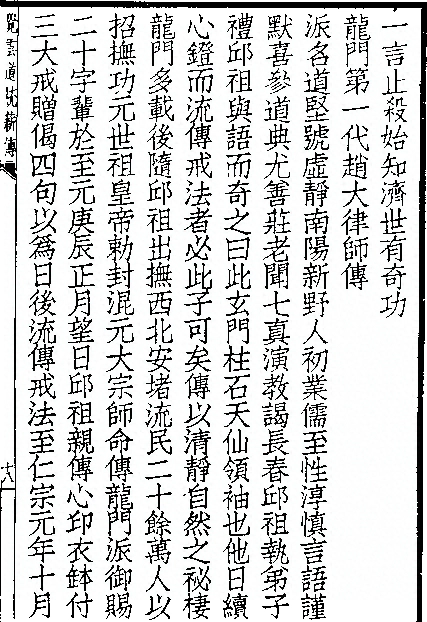 一言止殺始知濟世有奇功
龍門第一代趙大律師傳
派名道堅號虛靜南陽新野人初業儒至性淳愼言語謹
默喜參道典尤善莊老聞七真演教謁長春邱祖執弟子
禮邱祖與語而奇之曰此玄門柱石天仙領袖也他日續
心鐙而流傳戒法者必此子可矣傳以清靜自然之祕棲
龍門多載後隨邱祖出撫西北安堵流民二十餘萬人以
招撫功元世祖皇帝勅封混元大宗師命傳龍門派御賜
二十字輩於至元庚辰正月望日邱祖親傳心印衣鉢付
三大戒贈偈四句以爲日後流傳戒法至仁宗元年十月
覺雲道統薪傳
十八